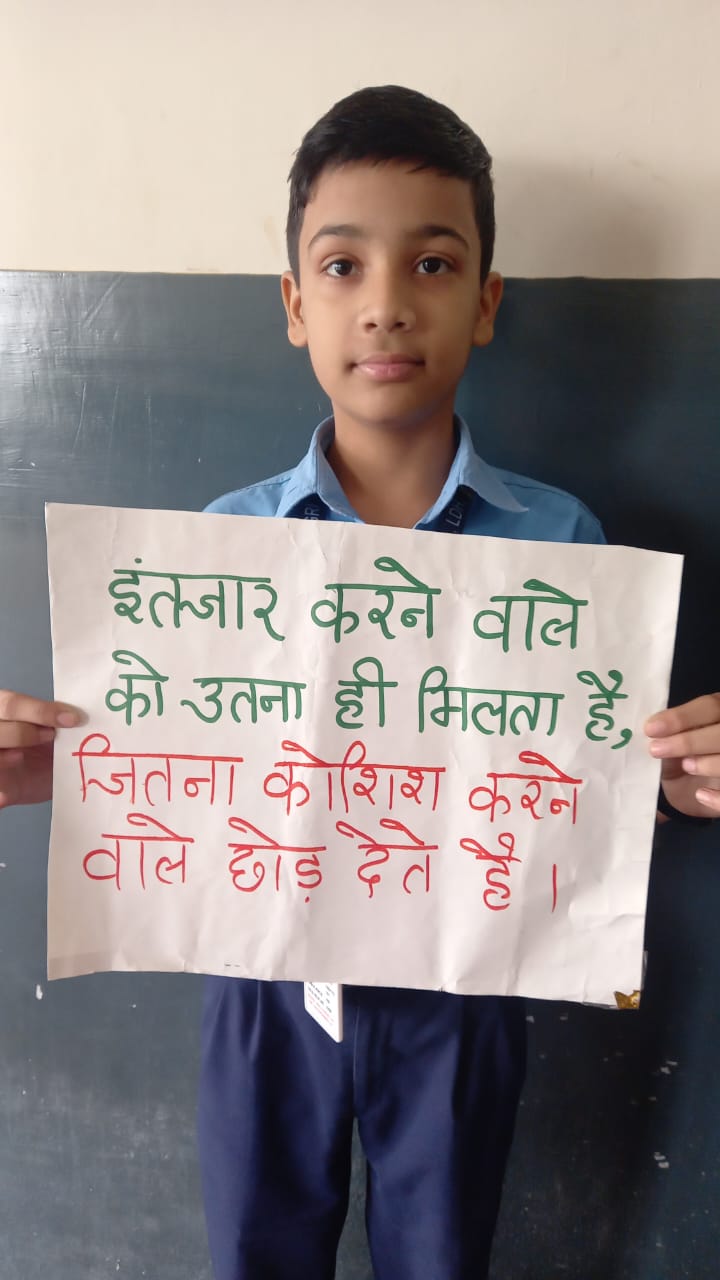 इंतजार करने वाले
को उतना ही मिलता है,
जितना कोशिश करने
वाले छोड़ देते हैं।